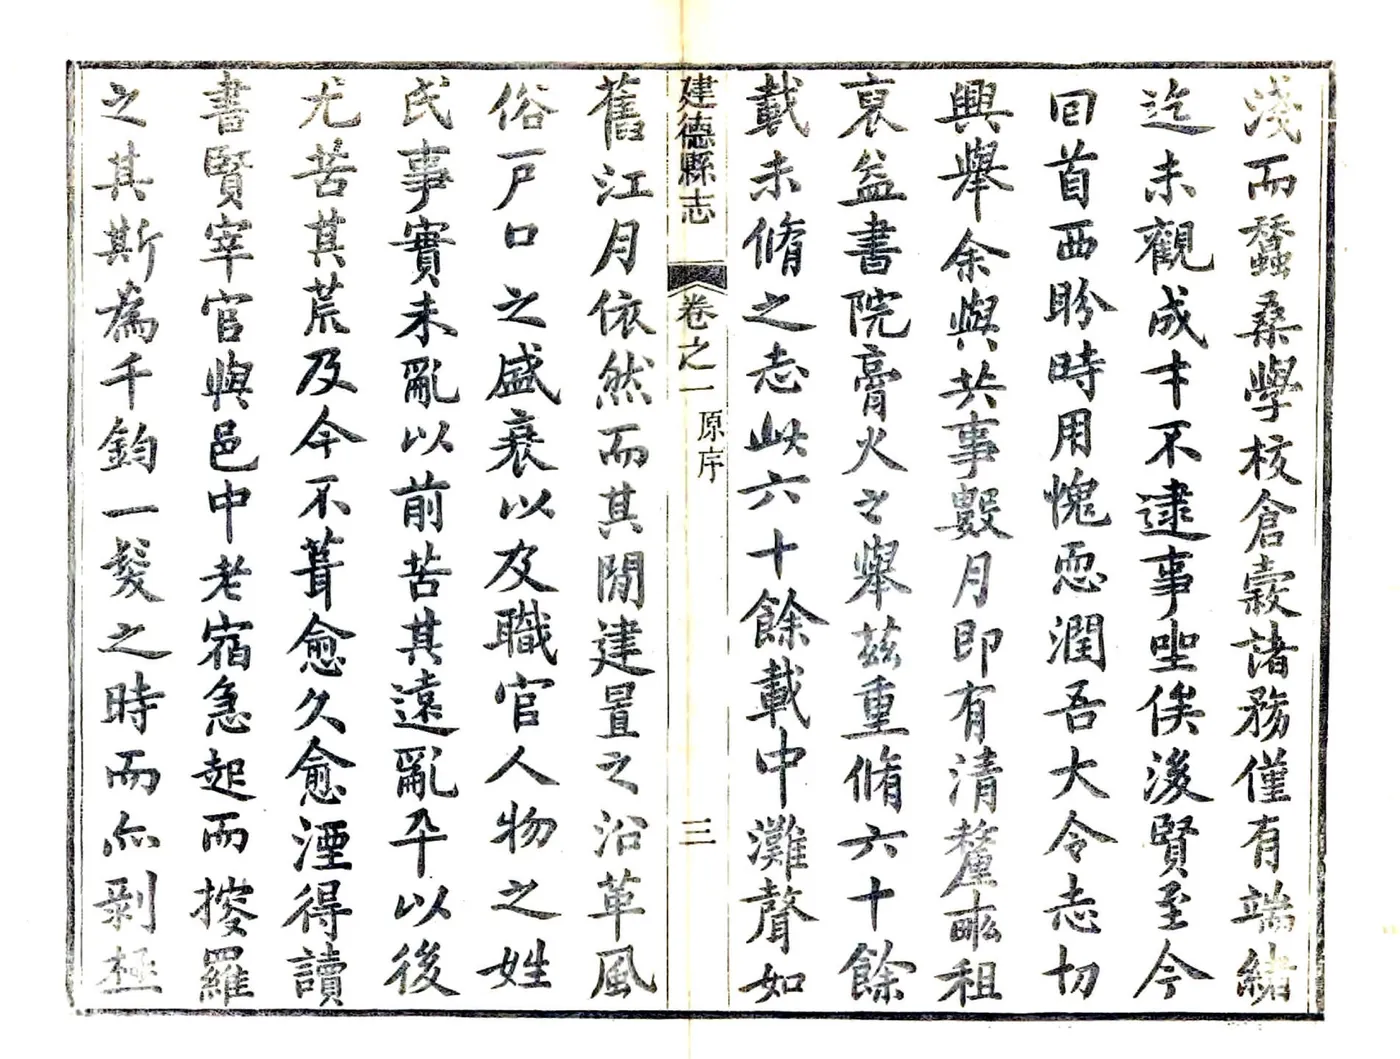 淺而蠶桑學校倉穀諸務僅有端緒
迄未觀成才不逮事聖俟後賢至今
回首西盼時用愧恧潤吾大令志切
興舉余與共事數月即有清釐畝租
裒益書院膏火之舉茲重脩六十餘
載未脩之志此六十餘載中灘聲如
建德縣志
卷之一
原序
三
舊江月依然而其閒建置之沿革風
俗戶口之盛衰以及職官人物之姓
氏事實未亂以前苦其遠亂平以後
尤苦其荒及今不葺愈久愈湮得讀
書賢宰官與邑中老宿急起而搜羅
之其斯為千鈞一髮之時而亦剝極